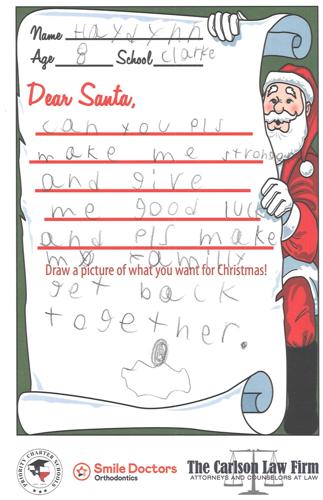 Name Haydynn
Age 8 School Clarke
Dear Santa,
can you pls
make me stronger
and give
me good luck
and pls make
my family
Draw a picture of what you want for Christmas!
get back
together.
PRIORITY CHARTER SCHOOLS
Smile Doctors
Orthodontics
The Carlson Law Firm
ATTORNEYS AND COUNSELORS AT LAW